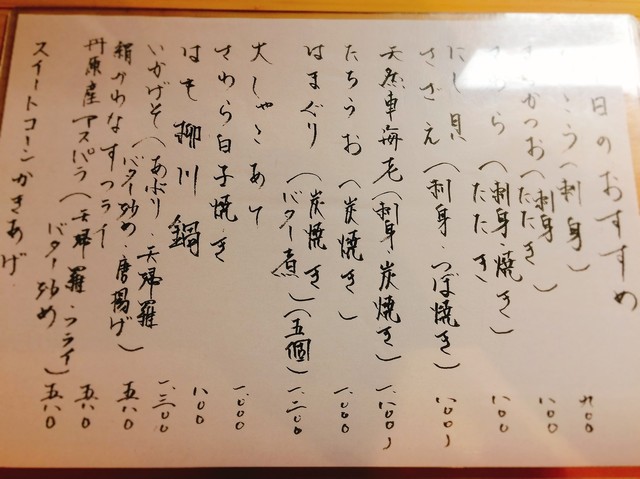 日のおすすめ
とう(刺身) 九〇〇
かつお(刺身・たたき) 八〇〇
さわら(刺身・焼き・たたき) 八〇〇
にし貝
さざえ(刺身・つぼ焼き) 八〇〇
天然車海老(刺身 炭焼き) 一、八〇〇
たちうお(炭焼き) 一、〇〇〇
はまぐり(炭焼き・バター煮)(五個) 一、二〇〇
大しゃこあて 一、〇〇〇
さわら白子焼き 八〇〇
はも柳川鍋 一、三〇〇
いかげそ(あぶり・天婦羅・バター炒め・唐揚げ) 五八〇
絹かわなすフライ
丹原産アスパラ(天婦羅・フライ・バター炒め) 五八〇
スイートコーンかきあげ 五八〇